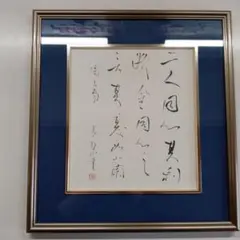 二人同心其利
断金同心之
言其臭如蘭